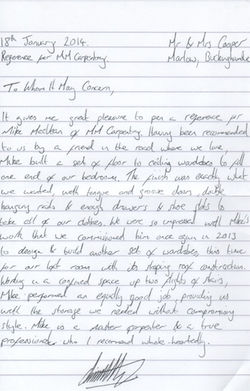 18th January 2014 Mr & Mrs Cooper
Reference for MM Carpentry. Marlow, Buckinghamshire
To Whom It May Concern,
It gives me great pleasure to pen a reference for
Mike of MM Carpentry. Having been recommended
to us by a friend in the road where we live,
Mike built a set of floor to ceiling wardrobes to fill
one end of our bedroom. The finish was exactly what
we wanted, with tongue and groove doors, double
hanging rails & enough drawers & shoe slots to
take all of our clothes. We were so impressed with Mike's
work that we commissioned him once again in 2013
to design & build another set of wardrobes this time
for our loft room with its sloping roof construction.
Working in a confined space up two flights of stairs,
Mike performed an equally good job providing us
with the storage we needed without compromising
style. Mike is a master carpenter & a true
professional who I recommend whole heartedly.